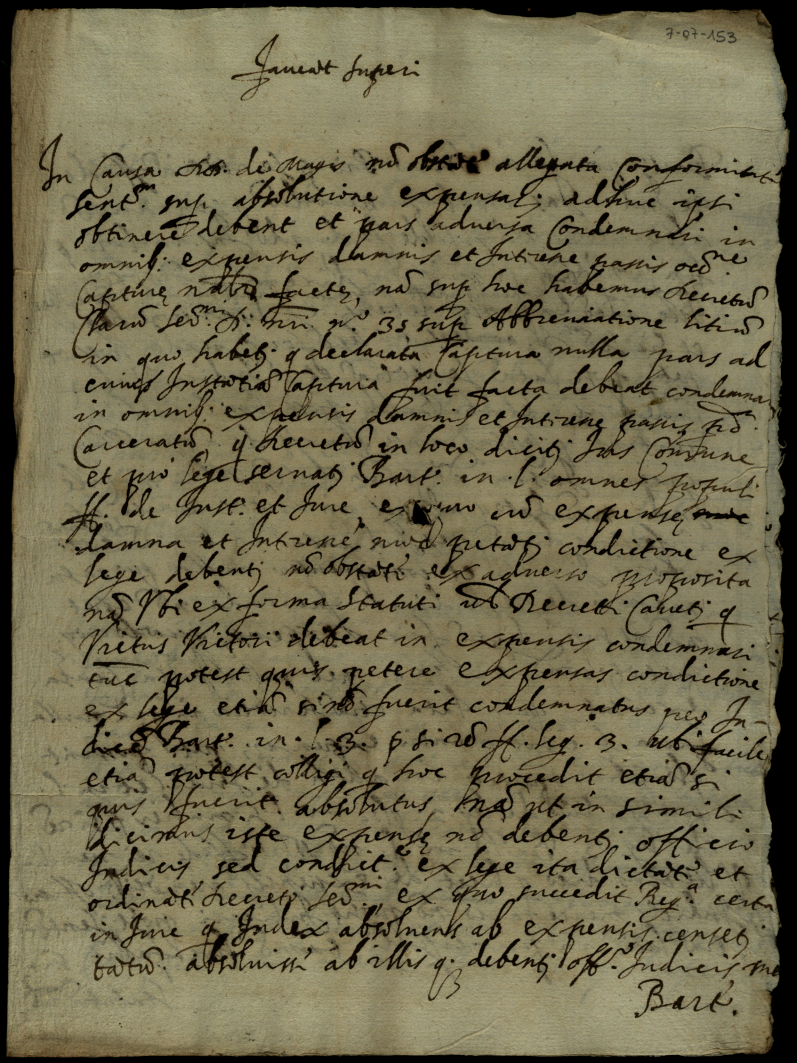 7-07-153
Faveat superi
In Causa de Magis nō obstāt allegata Conformitate
sent.m sup absolutione expensaꝝ adhuc ipsi
obtinere debent et pars adversa Condemnari in
omnibꝫ expensis damnis et Intere passis occ.ne
Capturę facte, nā sup hoc habemus decretū
n.o 35 sup Abbreuiatione litiū
in quo habetꝫ q declarata Captura nulla pars ad
cuius Instātiā Captura fuit facta debeat condemnari
in omnibꝫ expensis damnis et Intere passis p
Carceratū q decretū in loco dicitꝫ Jus Comune
et pro lege seruatꝫ Bart. in l. omnes populi
ff. de Just. et Jure, ex quo expensę
damna et Intere petātꝫ condictione ex
lege debentꝫ nō obstāt ex aduerso proposita
nā Vbi ex forma Statuti uel Decreti Cauetꝫ q
Victus Victori debeat in expensis condemnari
tūc potest quis petere expensas condictione
ex lege etiā si nō fuerit condemnatus per Ju-
dicē Bart. in l. 3. § si rō ff. leg. 3. ubi facile
etiā potest colligi q hoc procedit etiā si
quis fuerit absolutus, nā ut in simili
dicimus iste expensę nō debentꝫ officio
Judicis sed condict.e ex lege ita dictāt et
ordināt decreti ex quo succedit Reg.a certa
in Jure q Judex absoluens ab expensis censetꝫ
tātū absoluisse ab illis q debentꝫ off.o Judicis
Bart.